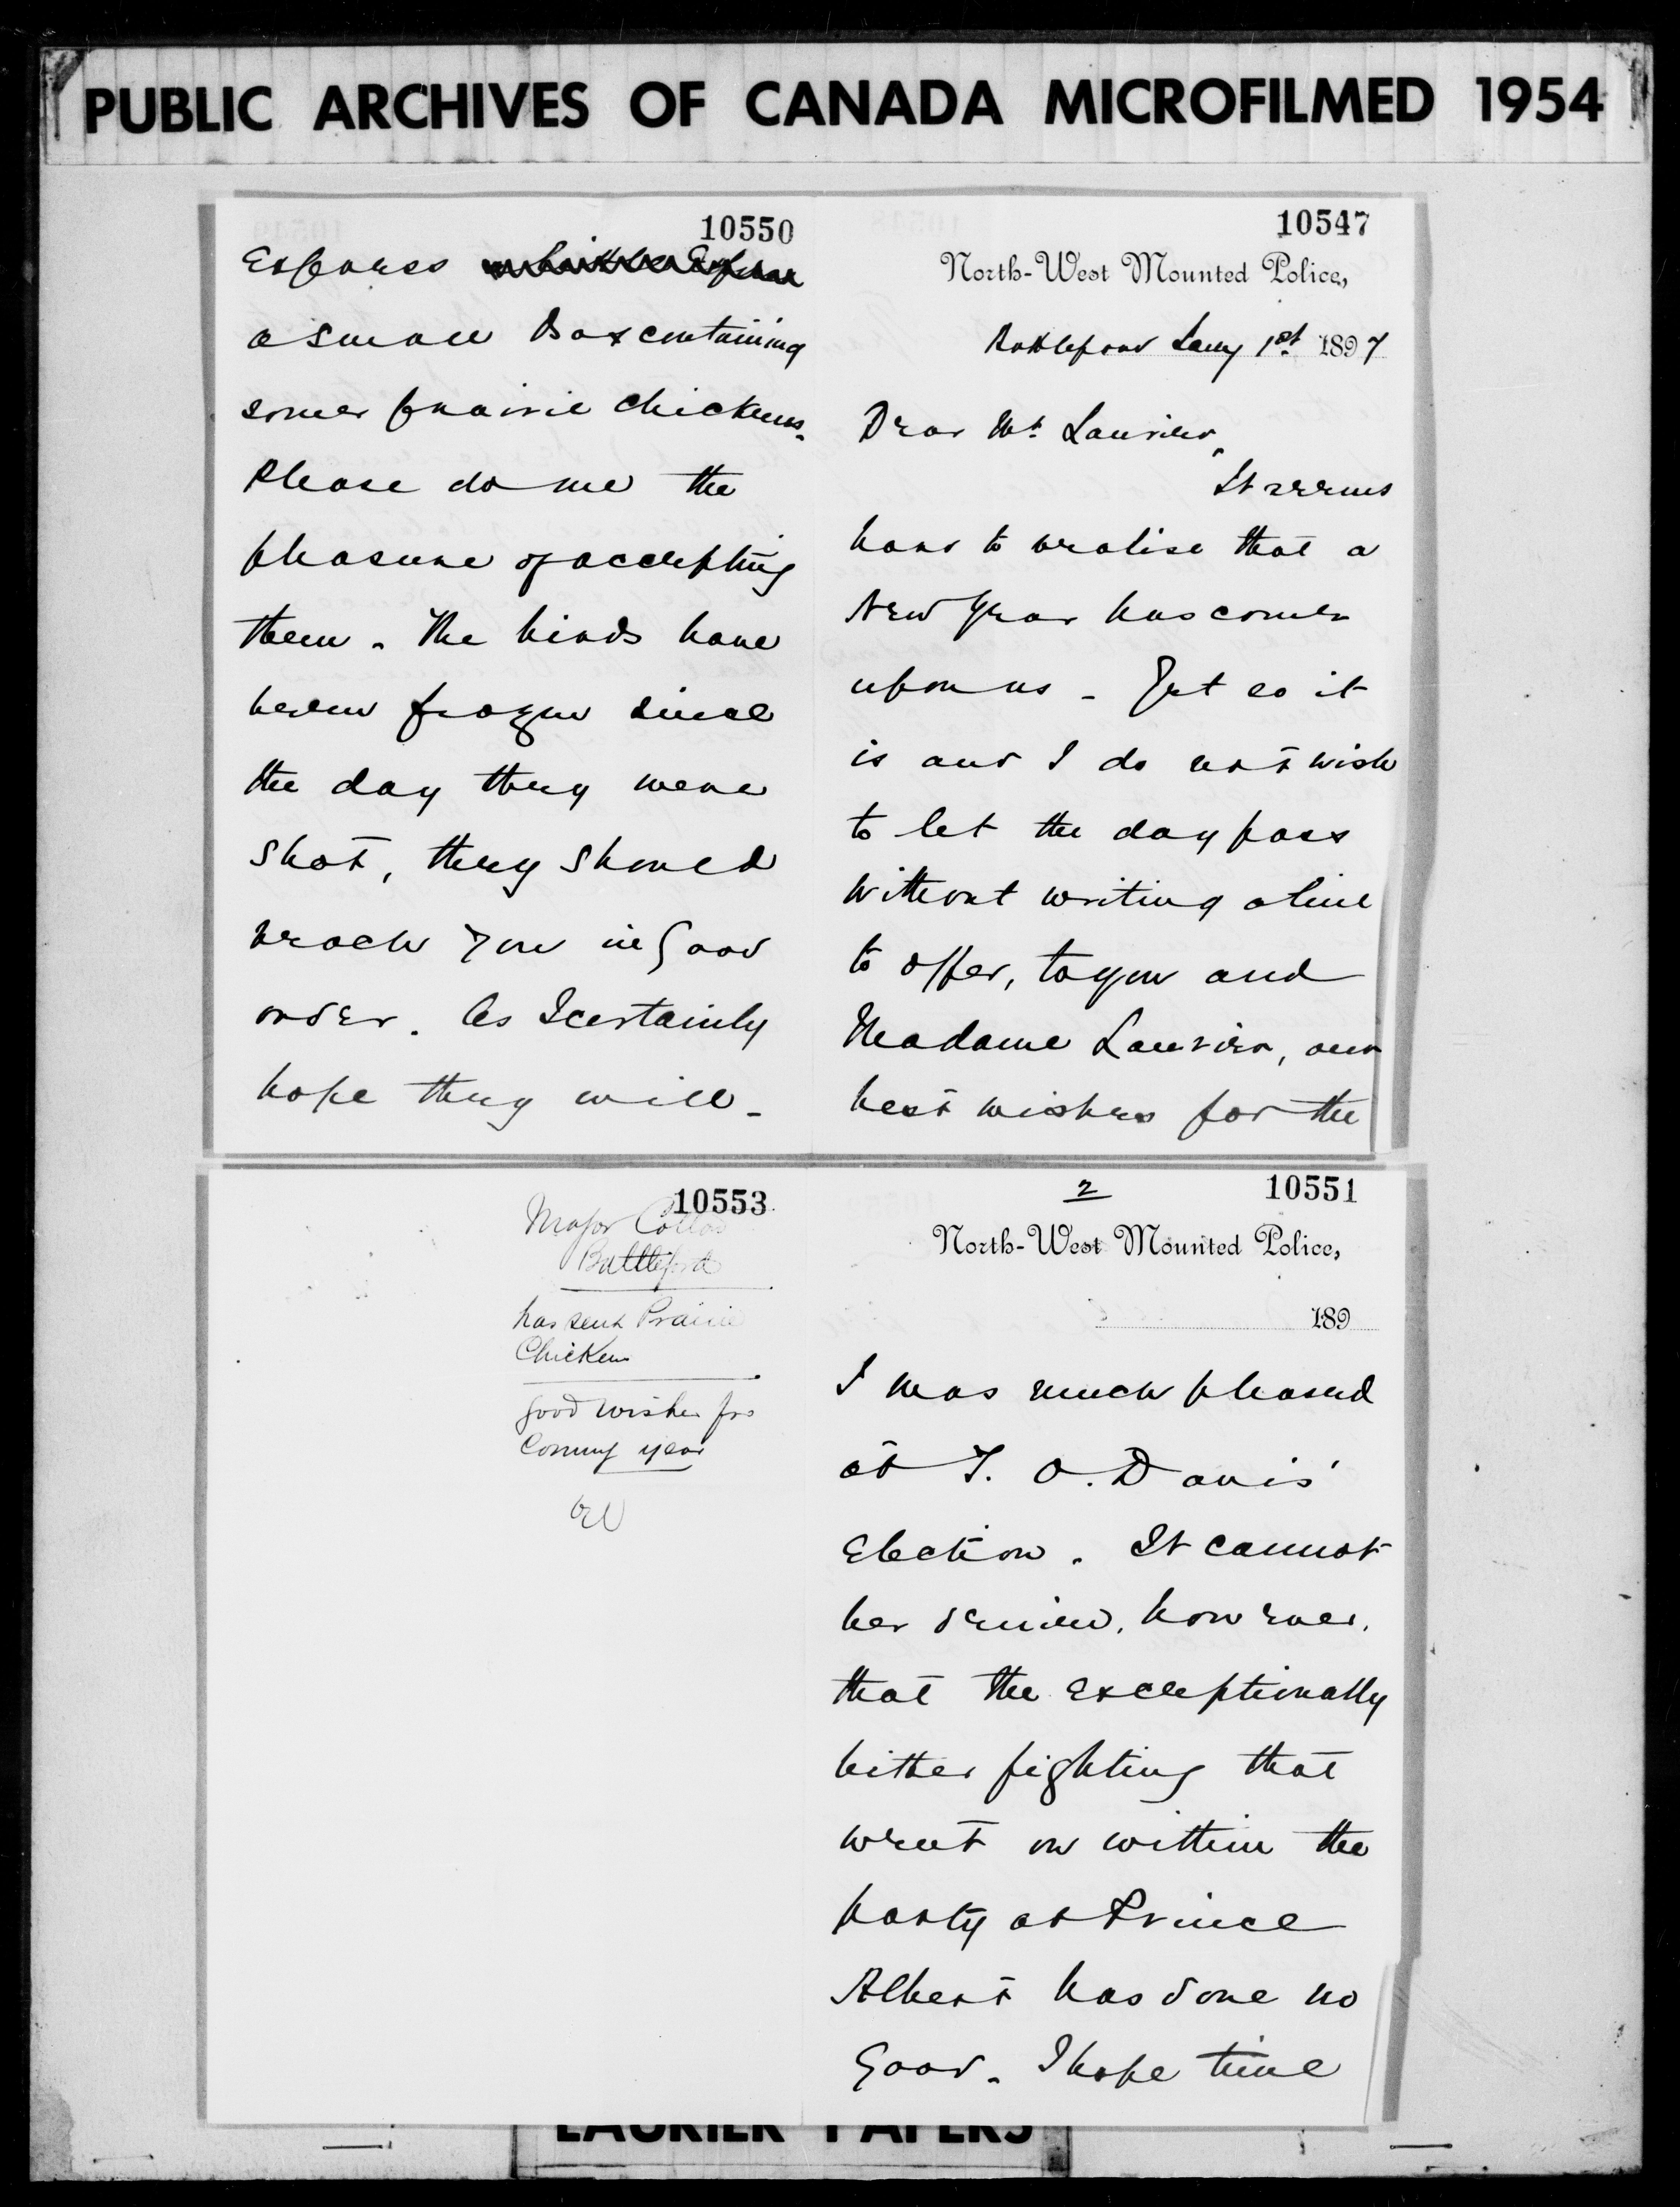 PUBLIC ARCHIVES OF CANADA MICROFILMED 1954
10550
Express
a small Box containing
some prairie chickens.
Please do me the
pleasure of accepting
them. The birds have
been frozen since
the day they were
shot, they should
reach you in good
order. As I certainly
hope they will -
10547
North-West Mounted Police,
Battleford Jany 1st 1897
Dear Mr. Laurier,
It seems
hard to realise that a
New Year has come
upon us - Yet so it
is and I do not wish
to let the day pass
without writing a line
to offer, to you and
Madame Laurier, our
best wishes for the
10553
Major Cotton
Battleford
has sent Prairie
Chicken
good wishes for
Coming year
2
10551
North-West Mounted Police,
189
I was much pleased
at T. O. Davis'
Election. It cannot
be denied, however,
that the exceptionally
bitter fighting that
went on within the
party at Prince
Albert has done no
Good. I hope time
LAURIER PAPERS